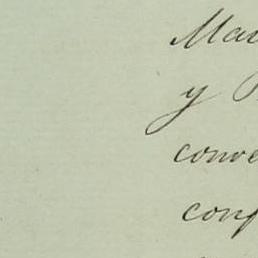 Mau
y
conve
conf